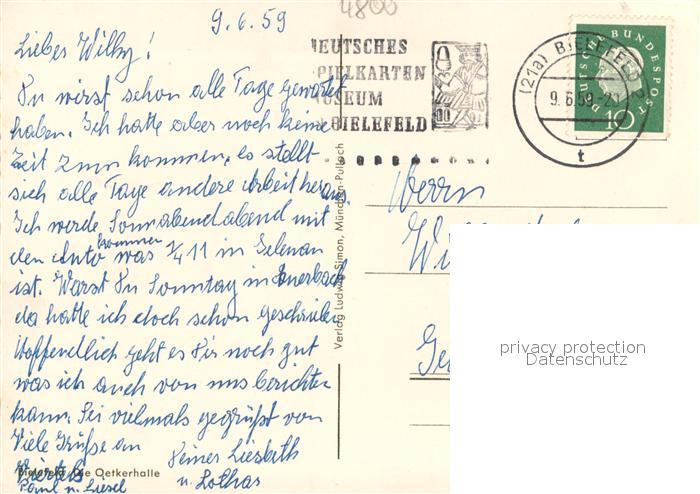 4800
9.6.59
Lieber Willy!
Du wirst schon alle Tage gewartet
haben. Ich hatte aber noch keine
Zeit zum kommen, es stellt
sich alle Tage andere Arbeit heraus.
Ich werde Sonnabendabend mit
den Auto kommen was 1/4 11 in
ist. Warst Du Sonntag in Auerbach
da hatte ich doch schon geschrieben
Hoffendlich geht es Dir noch gut
was ich auch von uns berichten
kann. Sei vielmals gegrüßt von
Viele Grüße an Deiner Liesbeth
u. Lothar
Paul u. Liesel
Bielefeld Die Oetkerhalle
Verlag Ludwig Simon, München-Pullach
DEUTSCHES
SPIELKARTEN
MUSEUM
BIELEFELD
(21a) BIELEFELD 2
9.6.59-20
t
DEUTSCHE BUNDESPOST
10
Herrn
privacy protection
Datenschutz